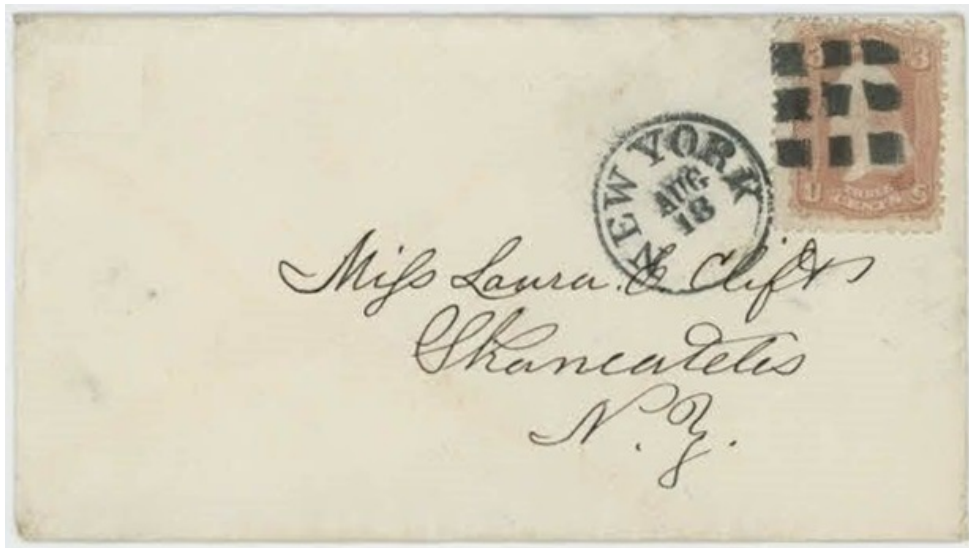 3 3
U S
THREE
CENTS
NEW YORK
AUG
18
Miss Laura. C Clift
Skaneateles
N. Y.